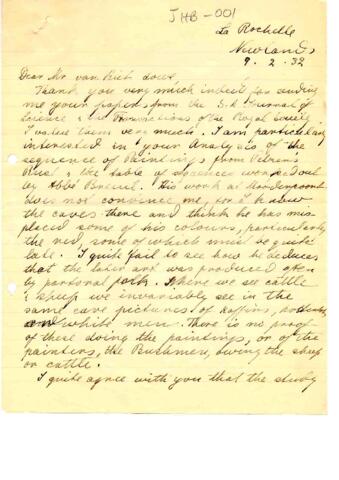 JHB-001
La Rochelle
Newlands
9.2.32
Dear Mr van Riet Lowe
Thank you very much indeed for sending
me your papers from the S.A Journal of
Science & the Transactions of the Royal Society
I value them very much. I am particularly
interested in your Analysis of the
sequence of Paintings from
& the table of worked out
by Abbé Breuil. His work at
does not convince me, for I know
the caves there and think he has mis-
placed some of his colours, particularly
the red, some of which must be quite
late. I quite fail to see how he deduces
that the later art was produced
by pastoral folk. Where we see cattle
& sheep we invariably see in the
same cave pictures of
and white men. There is no proof
of these doing the paintings, or of the
painters, the Bushmen, owning the sheep
or cattle.
I quite agree with you that the study